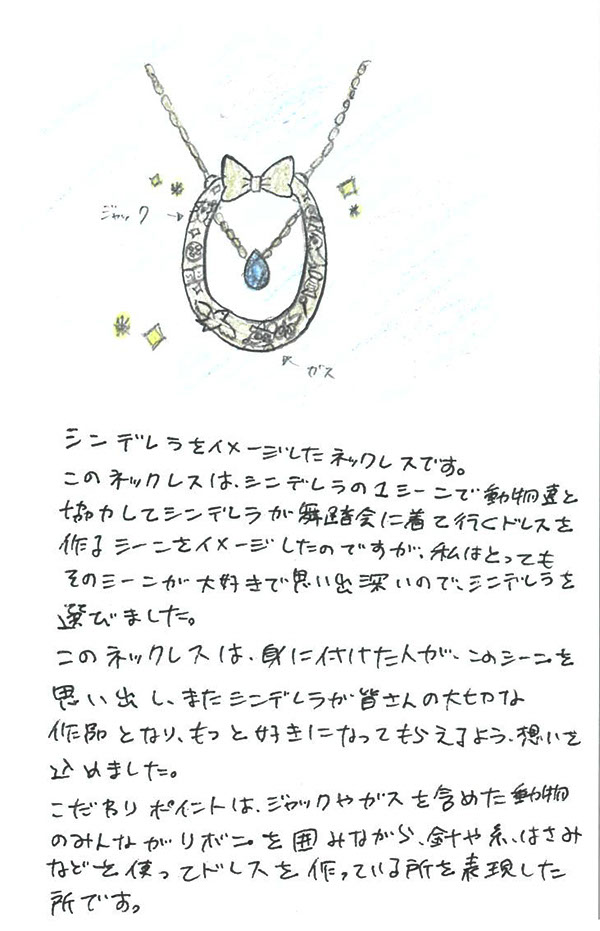 ジャック
ガス
シンデレラをイメージしたネックレスです。
このネックレスは、シンデレラの1シーンで動物達と
協力してシンデレラが舞踏会に着て行くドレスを
作るシーンをイメージしたのですが、私はとっても
そのシーンが大好きで思い出深いので、シンデレラを
選びました。
このネックレスは、身に付けた人が、このシーンを
思い出し、またシンデレラが皆さんの大切な
作品となり、もっと好きになってもらえるよう、想いを
込めました。
こだわりポイントは、ジャックやガスを含めた動物
のみんながリボンを囲みながら、針や糸、はさみ
などを使ってドレスを作っている所を表現した
所です。